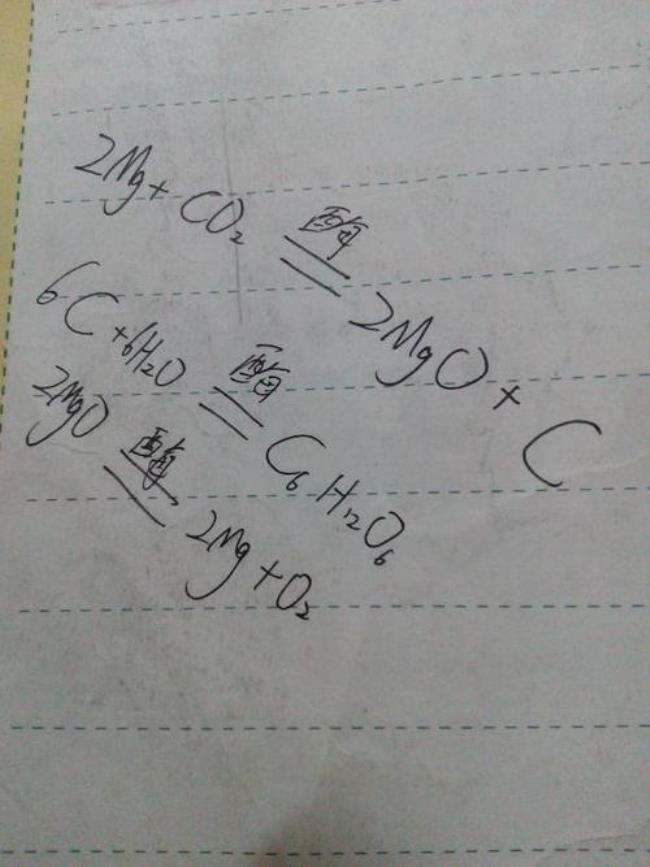 2Mg + CO₂ 酶 == 2MgO + C
6C + 6H₂O 酶 == C₆H₁₂O₆
2MgO 酶 == 2Mg + O₂